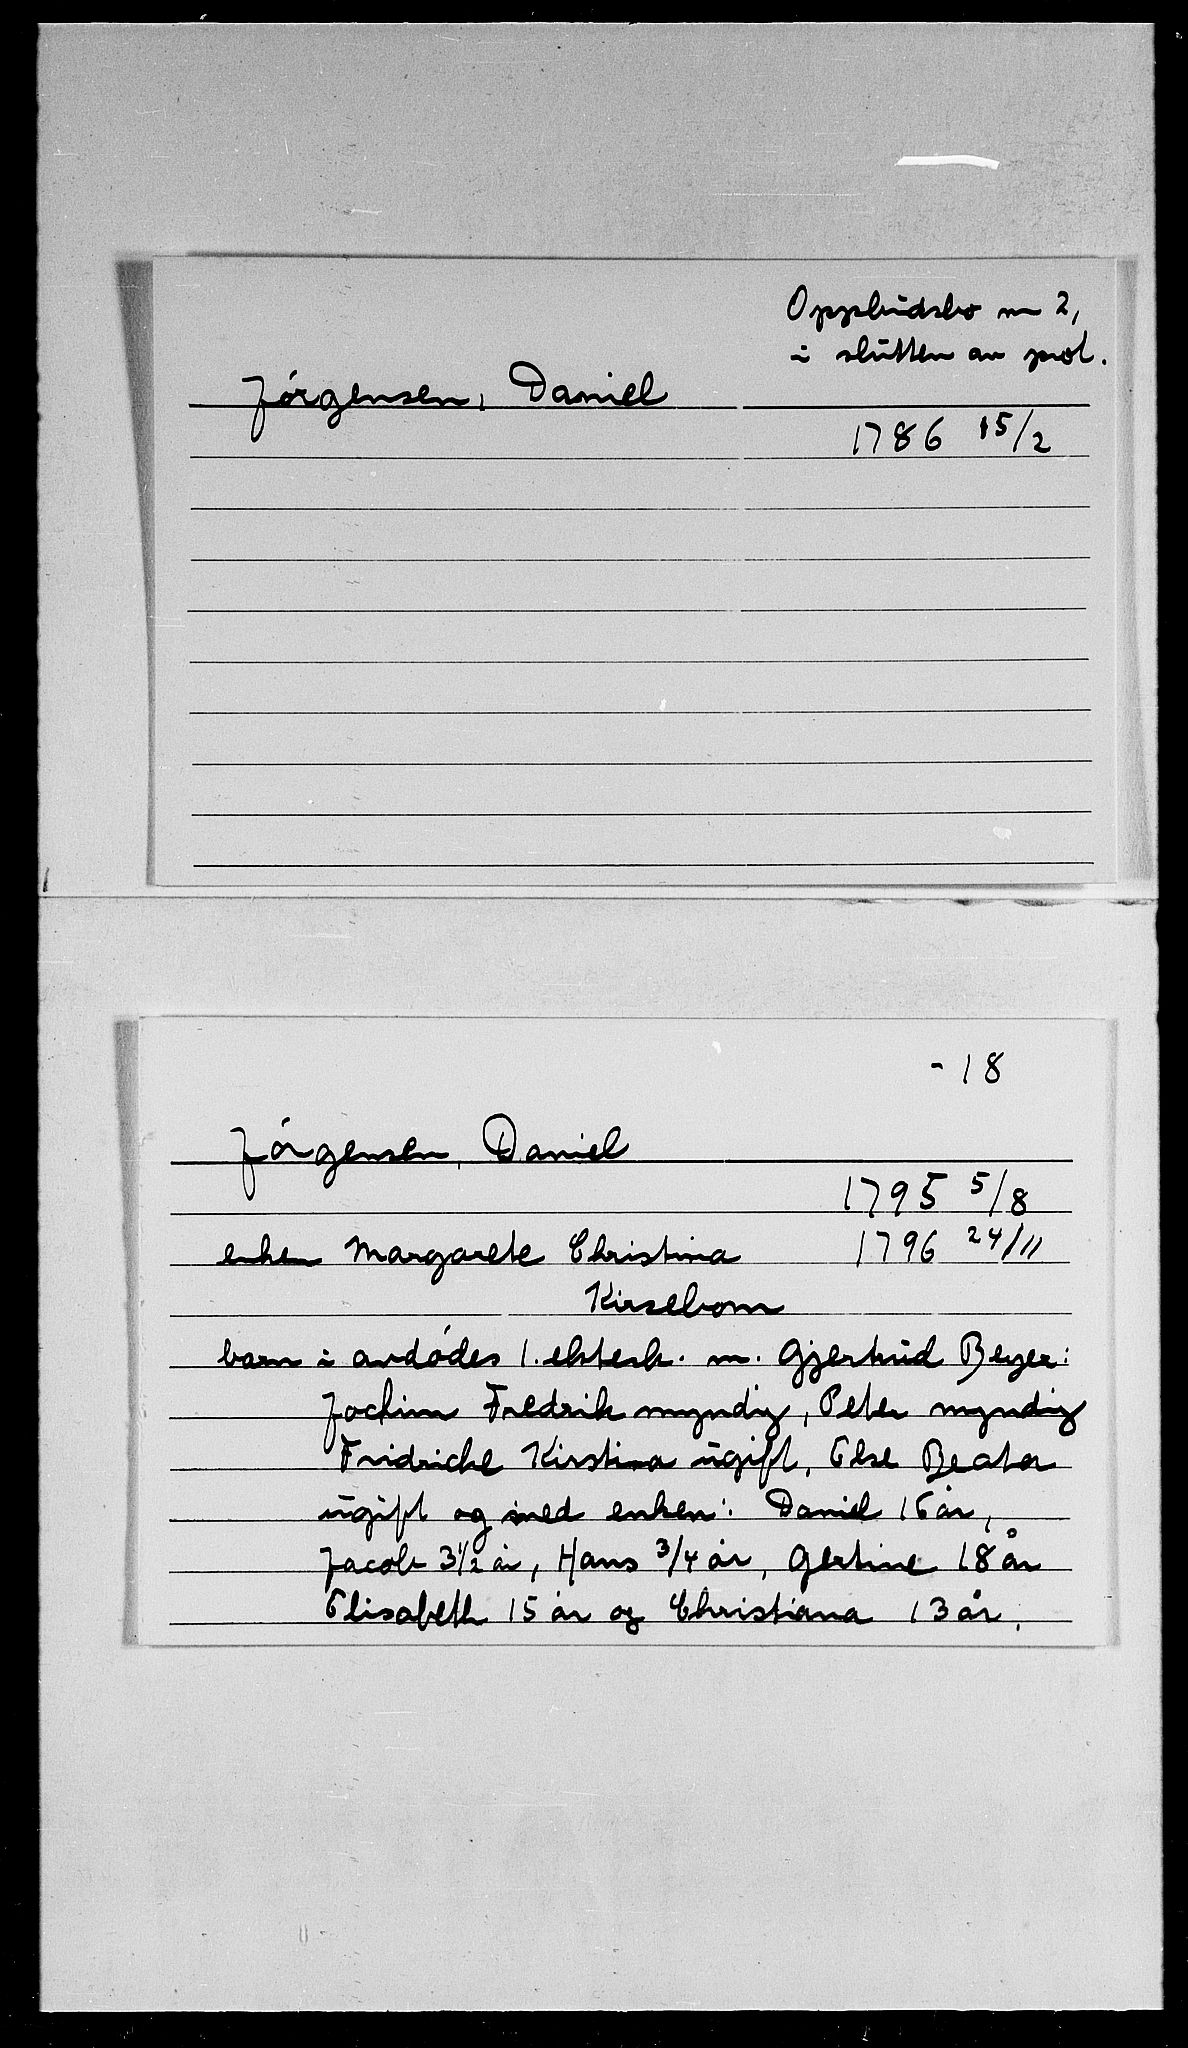 Oppbudsbo nr 2,
i slutten av prot.
Jörgensen, Daniel
1786 15/2
- 18
Jörgensen, Daniel
1795 5/8
enken Margarete Christina 1796 24/11
Kirsebom
barn i avdødes 1. ektesk. m. Gjertrud Beyer:
Jochim Fredrik myndig, Peter myndig
Fridriche Kirstina ugift, Else Beata
ugift og med enken: Daniel 16 år,
Jacob 3 1/2 år, Hans 3/4 år, Gertine 18 år
Elisabeth 15 år og Christiana 13 år.